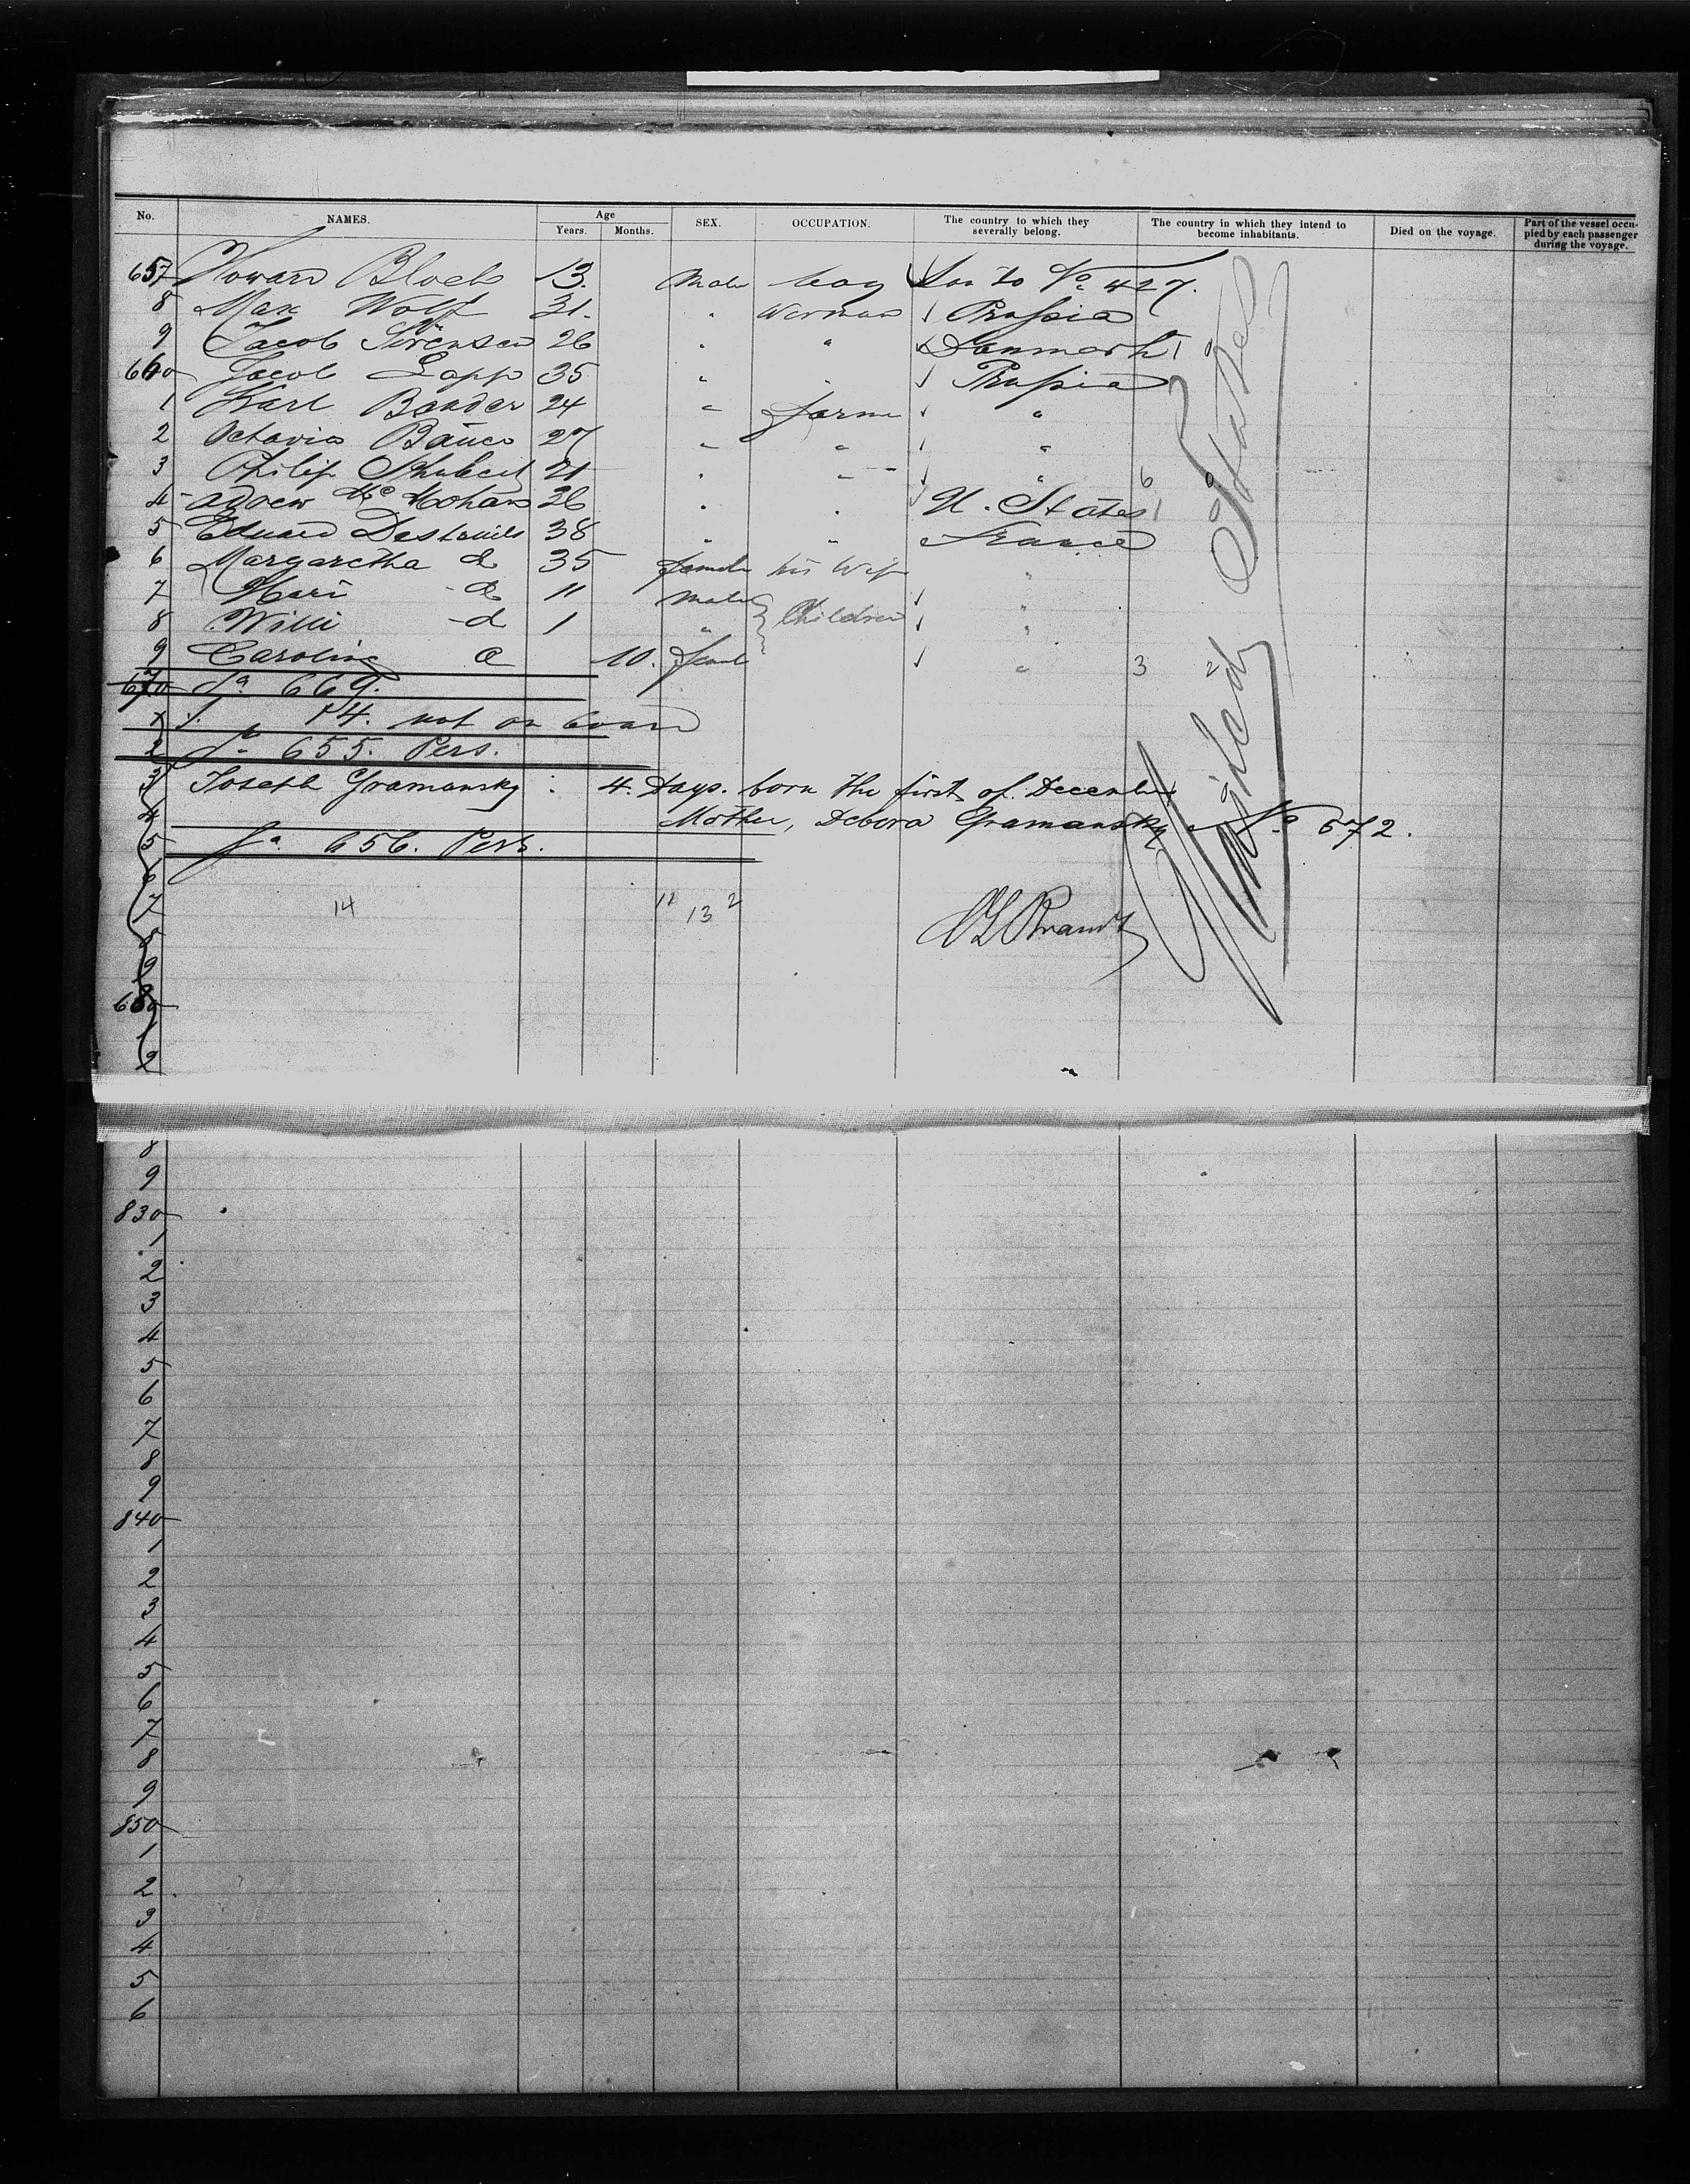 No. NAMES. Age Years. Months. SEX. OCCUPATION. The country to which they severally belong. The country in which they intend to become inhabitants. Died on the voyage. Part of the vessel occupied by each passenger during the voyage.
657 Howard Bloch 13. Male boy Son to No. 427.
8 Max Wolf 31. " Workman Prussia
9 Jacob Sörensen 26 " " Denmark 1 0
660 Jacob Lapp 35 " " Prussia
1 Karl Bender 24 " farmer "
2 Octavio 27 " " "
3 Philip Schubert 21 " " " 6 0
4 Adrew Mc Mohan 26 " " U. States 1 0
5 Eduard 38 " " France
6 Margaretha d 35 female his Wife "
7 d 11 Male Children "
8 Willi d 1 " "
9 Caroline d 10. Fem "
3 2
670 Sa 669.
1 ./. 14. not on board
2 Sa 655. Pers.
3 Joseph Gramansky : 4. Days. born the first of December
4 Mother, Debora Gramansky No 572.
5 Sa. 656. Pers.
6
7 14 11 13 2
8
9
680
1
2
United States
8
9
830
1
2
3
4
5
6
7
8
9
840
1
2
3
4
5
6
7
8
9
850
1
2
3
4
5
6